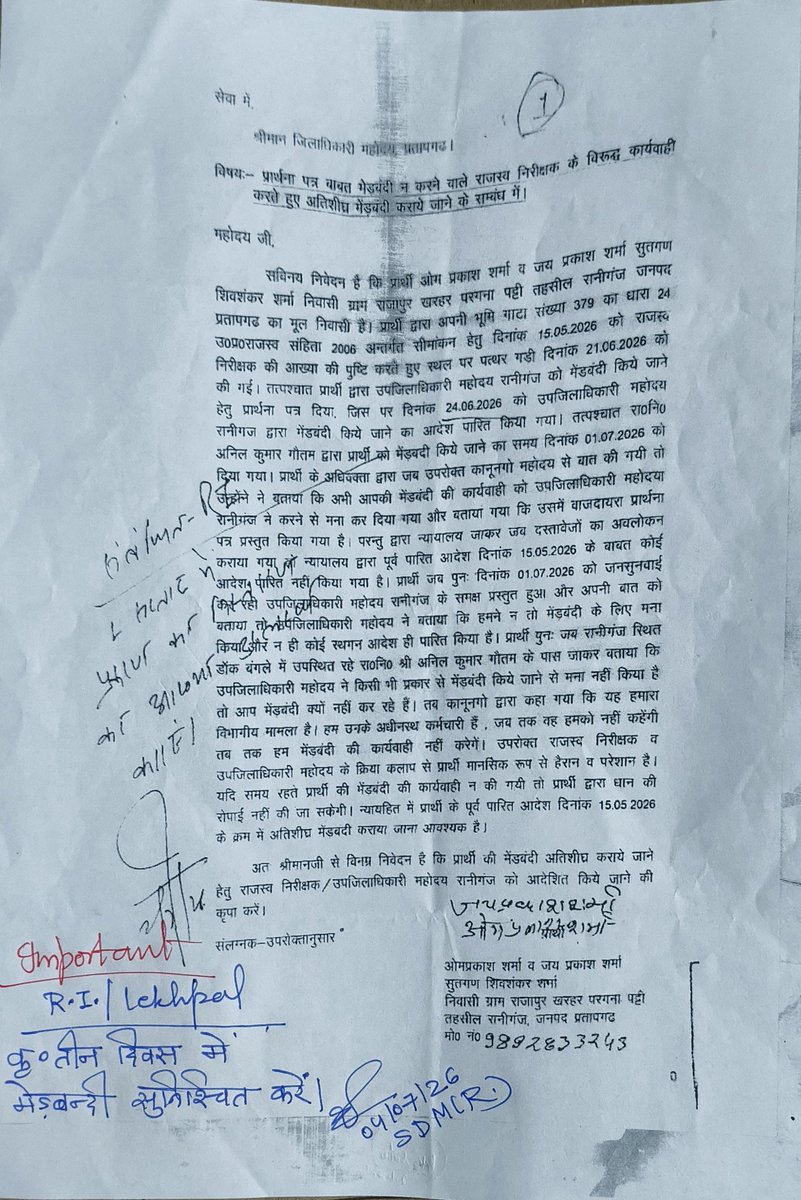 1
सेवा में,
श्रीमान जिलाधिकारी महोदय, प्रतापगढ।
विषयः- प्रार्थना पत्र बाबत मेड़बंदी न करने वाले राजस्व निरीक्षक के विरूद्ध कार्यवाही
करते हुए अतिशीघ्र मेंड़बंदी कराये जाने के सम्बंध में।
महोदय जी,
सविनय निवेदन है कि प्रार्थी ओम प्रकाश शर्मा व जय प्रकाश शर्मा सुतगण
शिवशंकर शर्मा निवासी ग्राम राजापुर खरहर परगना पट्टी तहसील रानीगंज जनपद
प्रतापगढ का मूल निवासी है। प्रार्थी द्वारा अपनी भूमि गाटा संख्या 379 का धारा 24
उ0प्र0राजस्व संहिता 2006 अन्तर्गत सीमांकन हेतु दिनांक 15.05.2026 को राजस्व
निरीक्षक की आख्या की पुष्टि करते हुए स्थल पर पत्थर गड़ी दिनांक 21.06.2026 को
की गई। तत्पश्चात प्रार्थी द्वारा उपजिलाधिकारी महोदय रानीगंज को मेंडबंदी किये जाने
हेतु प्रार्थना पत्र दिया, जिस पर दिनांक 24.06.2026 को उपजिलाधिकारी महोदय
रानीगज द्वारा मेंडबंदी किये जाने का आदेश पारित किया गया। तत्पश्चात रा0नि0
अनिल कुमार गौतम द्वारा प्रार्थी को मेंड़बदी किये जाने का समय दिनांक 01.07.2026 को
दिया गया। प्रार्थी के अधिवक्ता द्वारा जब उपरोक्त कानूनगो महोदय से बात की गयी तो
उन्होंने ने बताया कि अभी आपकी मेंडबदी की कार्यवाही को उपजिलाधिकारी महोदया
रानीगंज ने करने से मना कर दिया गया और बताया गया कि उसमें वाजदायरा प्रार्थना
पत्र प्रस्तुत किया गया है। परन्तु द्वारा न्यायालय जाकर जब दस्तावेजों का अवलोकन
कराया गया तो न्यायालय द्वारा पूर्व पारित आदेश दिनांक 15.05.2026 के बाबत कोई
आदेश पारित नहीं किया गया है। प्रार्थी जब पुनः दिनांक 01.07.2026 को जनसुनवाई
कर रही उपजिलाधिकारी महोदय रानीगंज के समक्ष प्रस्तुत हुआ और अपनी बात को
बताया तो उपजिलाधिकारी महोदय ने बताया कि हमने न तो मेंड़बंदी के लिए मना
किया और न ही कोई स्थगन आदेश ही पारित किया है। प्रार्थी पुनः जब रानीगंज स्थित
डॉक बंगले में उपस्थित रहे रा0नि0 श्री अनिल कुमार गौतम के पास जाकर बताया कि
उपजिलाधिकारी महोदय ने किसी भी प्रकार से मेंड़बंदी किये जाने से मना नहीं किया है
तो आप मेंड़बदी क्यों नहीं कर रहे हैं। तब कानूनगो द्वारा कहा गया कि यह हमारा
विभागीय मामला है। हम उनके अधीनस्थ कर्मचारी हैं , जब तक वह हमको नहीं कहेंगी
तब तक हम मेंडबदी की कार्यवाही नहीं करेगें। उपरोक्त राजस्व निरीक्षक व
उपजिलाधिकारी महोदय के क्रिया कलाप से प्रार्थी मानसिक रूप से हैरान व परेशान है।
यदि समय रहते प्रार्थी की मेंडबदी की कार्यवाही न की गयी तो प्रार्थी द्वारा धान की
रोपाई नहीं की जा सकेगी। न्यायहित में प्रार्थी के पूर्व पारित आदेश दिनांक 15.05.2026
के क्रम में अतिशीघ्र मेंडबदी कराया जाना आवश्यक है।
अत श्रीमानजी से विनम्र निवेदन है कि प्रार्थी की मेंडबदी अतिशीघ्र कराये जाने
हेतु राजस्व निरीक्षक/उपजिलाधिकारी महोदय रानीगंज को आदेशित किये जाने की
कृपा करें।
जयप्रकाश शर्मा
ओम प्रकाश शर्मा
प्रार्थी
संलग्नक-उपरोक्तानुसार
ओमप्रकाश शर्मा व जय प्रकाश शर्मा
सुतगण शिवशंकर शर्मा
निवासी ग्राम राजापुर खरहर परगना पट्टी
तहसील रानीगंज, जनपद प्रतापगढ
मो0 नं0 9892833243
Important
R.I./Lekhpal
कृ० तीन दिवस में
मेड़बन्दी सुनिश्चित करें।
04/07/26
SDM(R.)